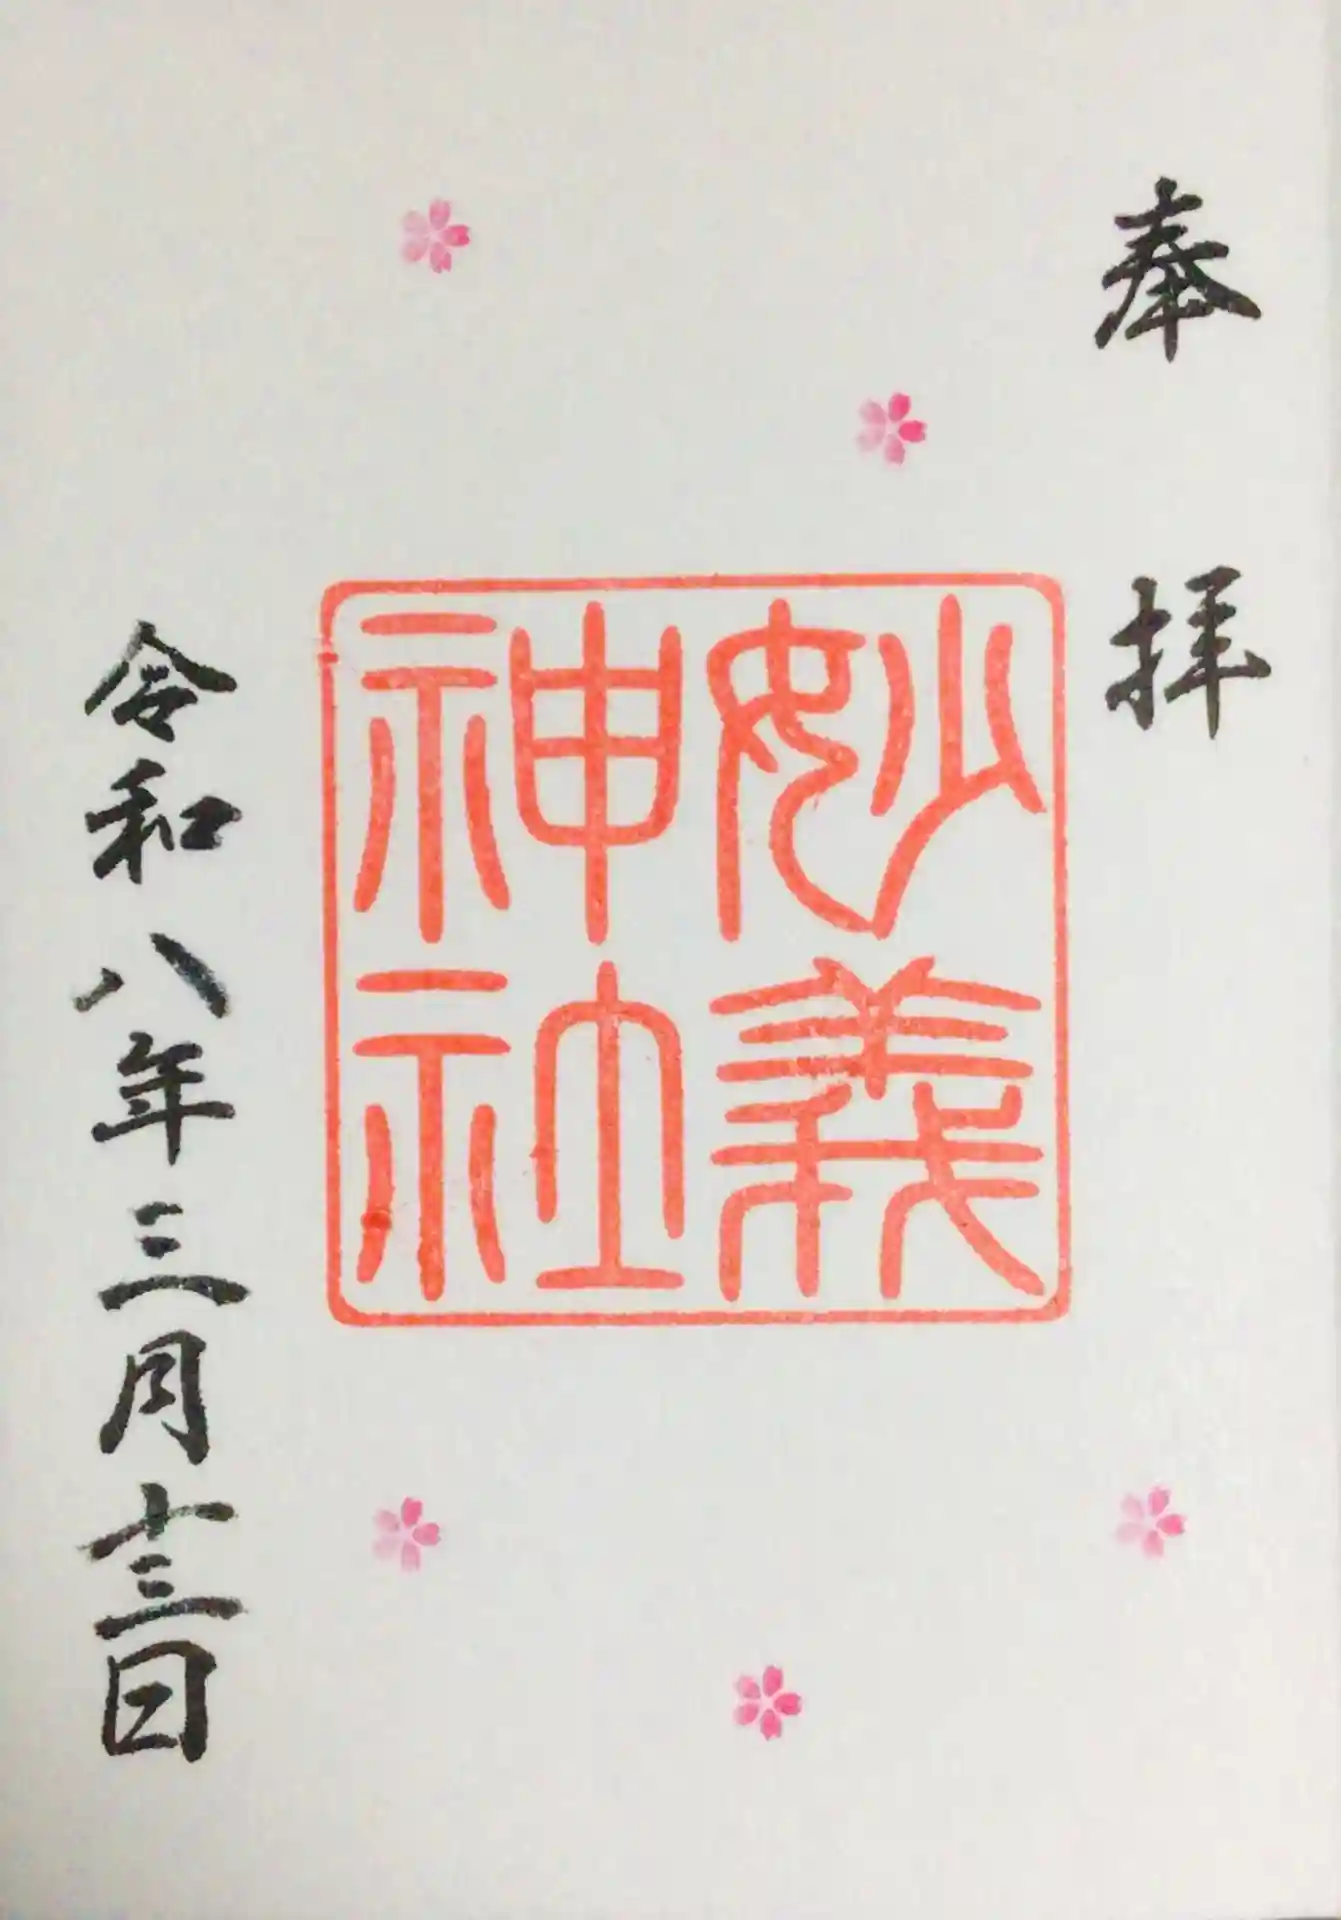 奉拝
妙義
神社
令和八年三月十三日